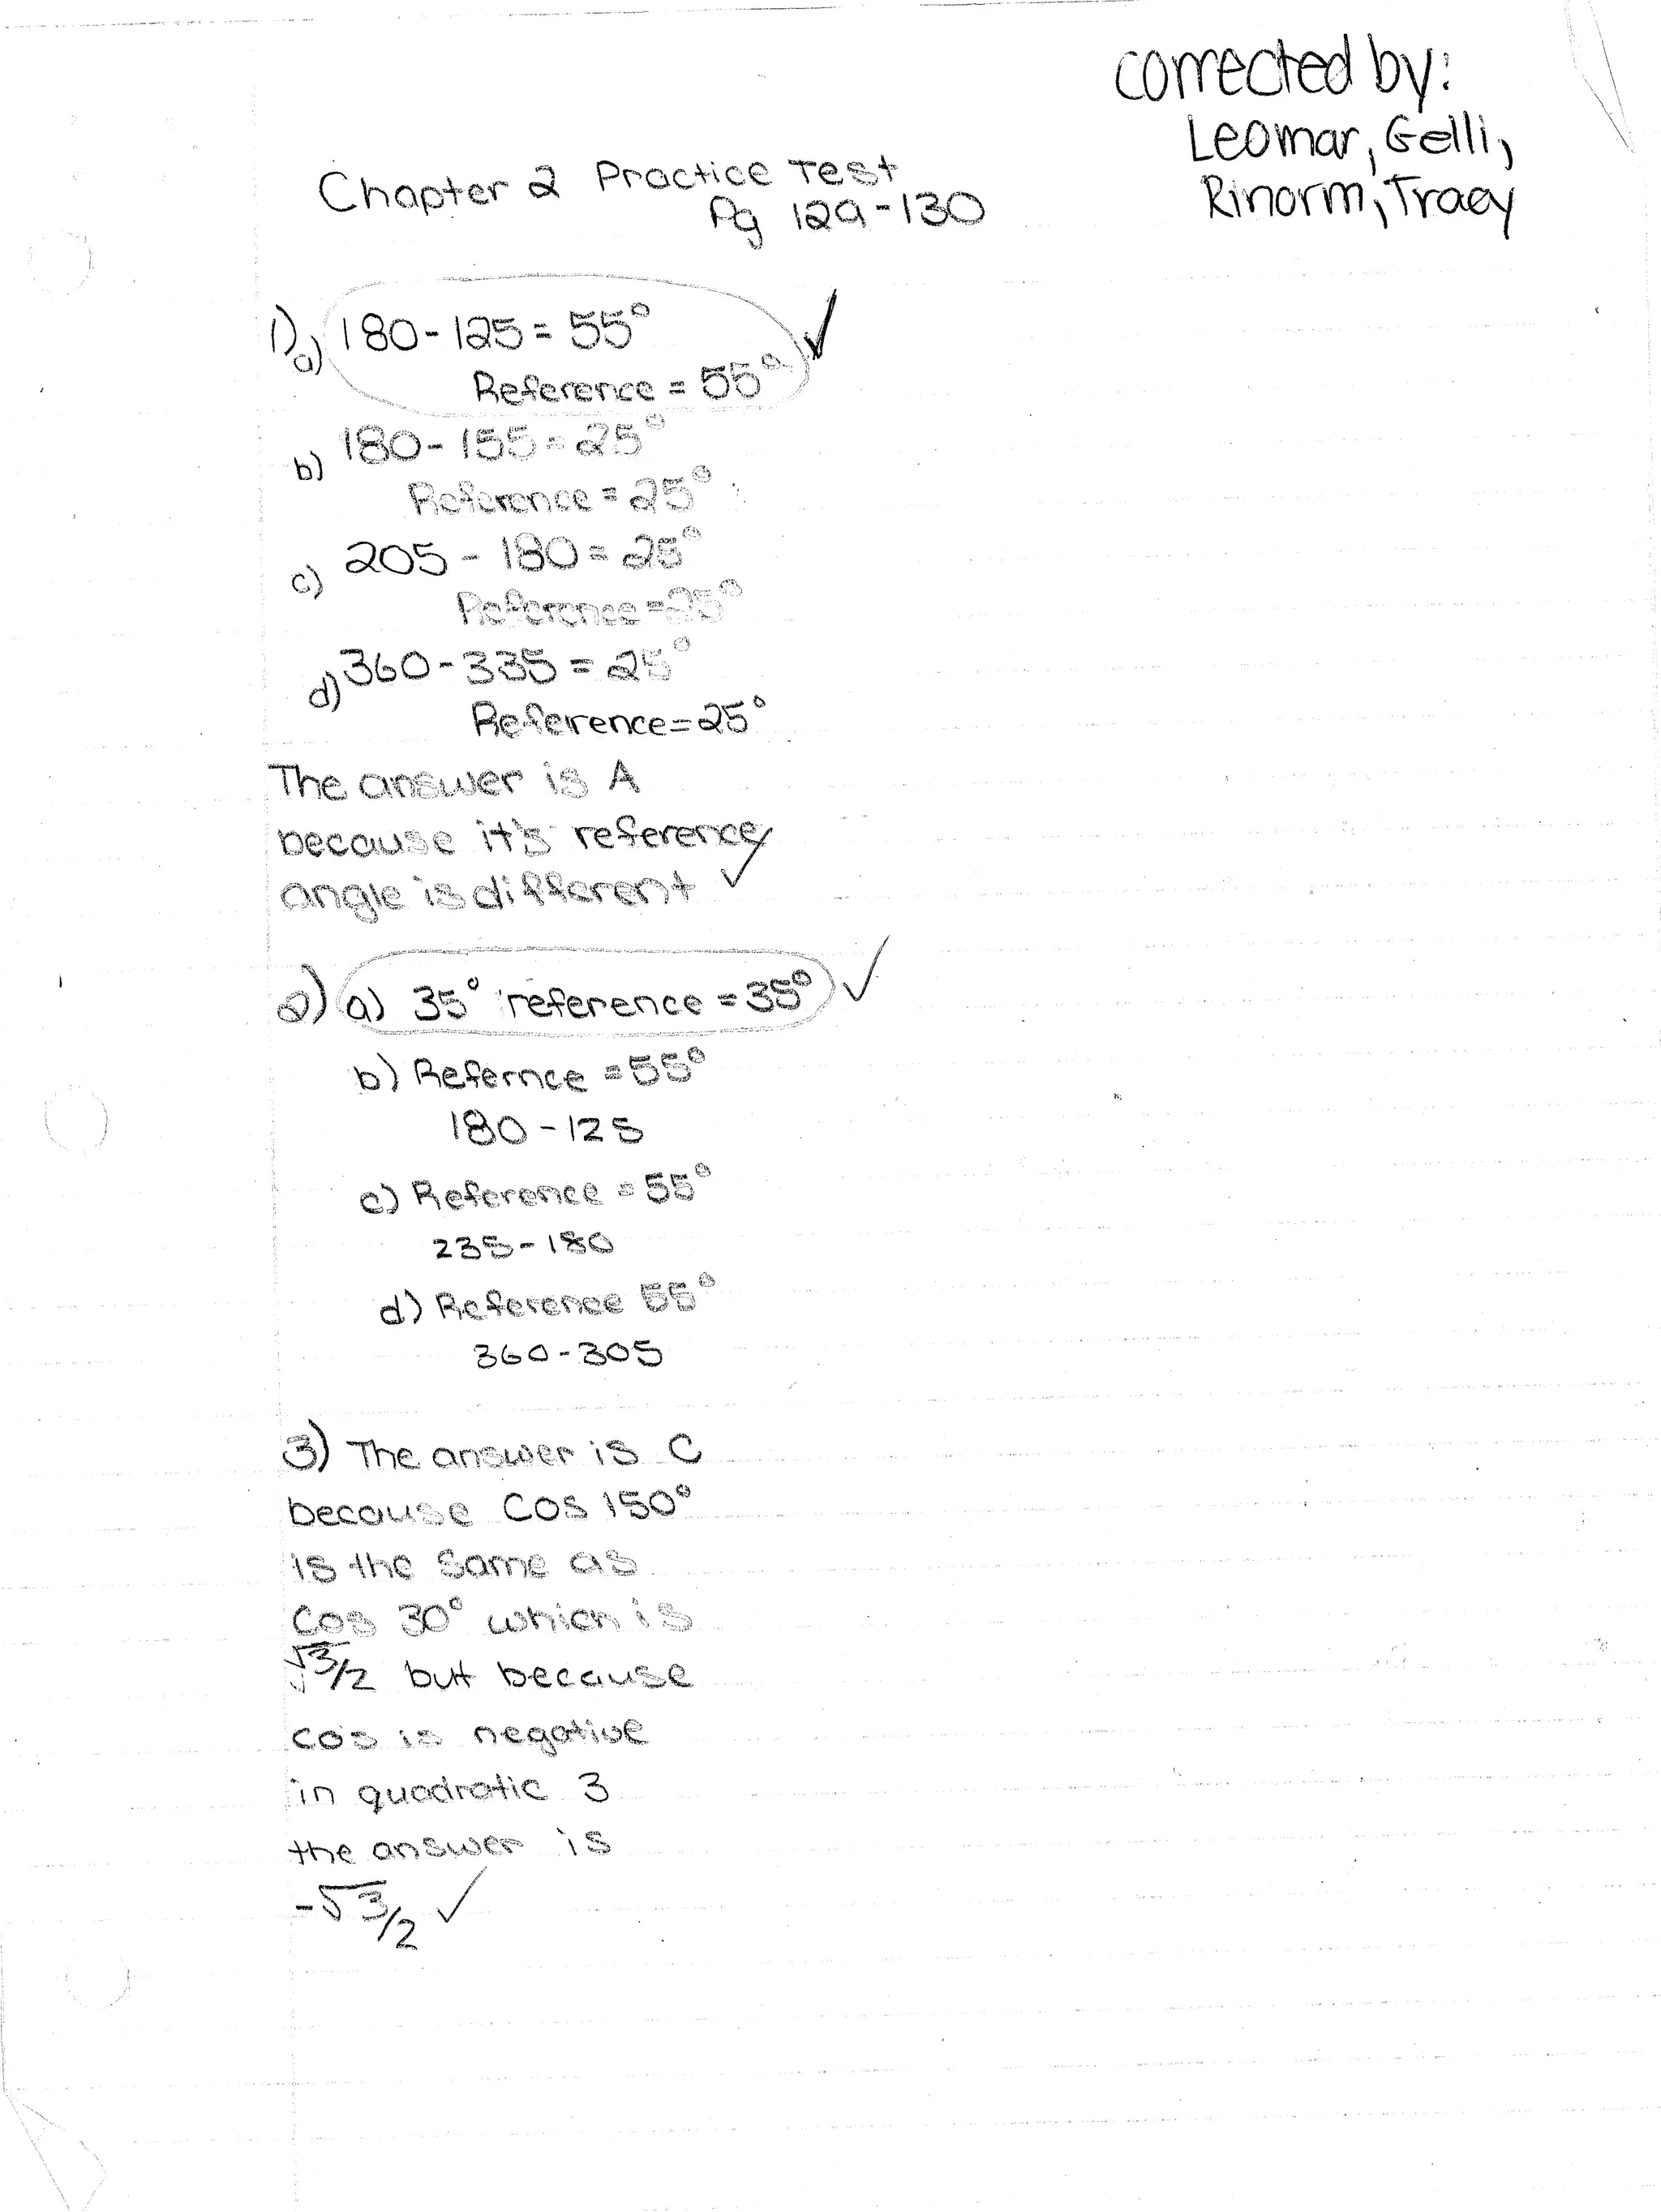 corrected by:
Leomar, Gelli,
Rinorm, Tracy
Chapter 2 Practice Test
Pg 129-130
1) a) 180-125 = 55°
Reference = 55°
b) 180-155 = 25°
Reference = 25°
c) 205 - 180 = 25°
Reference = 25°
d) 360-335 = 25°
Reference = 25°
The answer is A
because it's reference
angle is different ✓
2) a) 35° reference = 35° ✓
b) Refernce = 55°
180-125
c) Reference = 55°
235-180
d) Reference 55°
360-305
3) The answer is C
because Cos 150°
is the same as
Cos 30° which is
√3/2 but because
cos is negative
in quadratic 3
the answer is
-√3/2 ✓